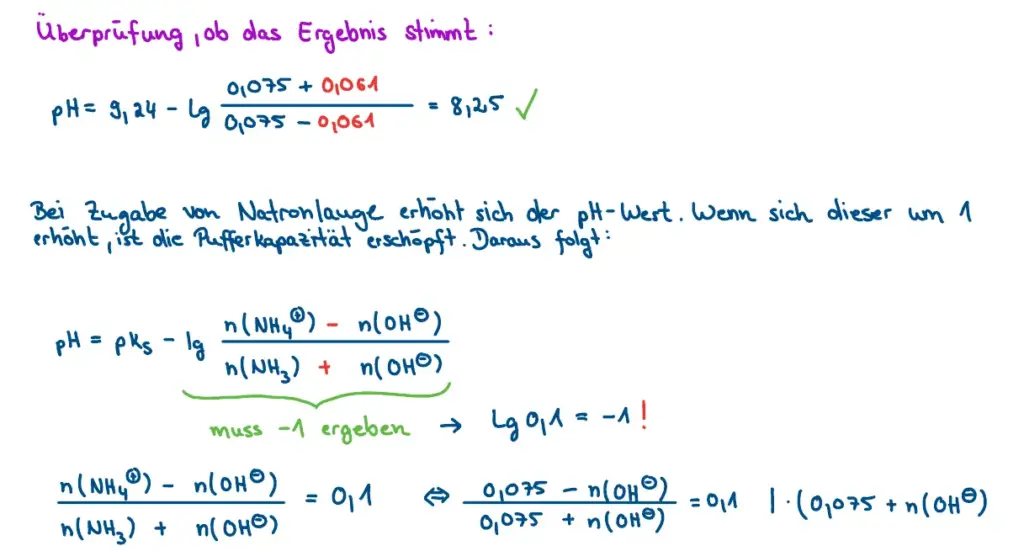 Überprüfung, ob das Ergebnis stimmt:
pH = 9,24 - lg (0,075 + 0,061)/(0,075 - 0,061) = 8,25 ✓
Bei Zugabe von Natronlauge erhöht sich der pH-Wert. Wenn sich dieser um 1
erhöht, ist die Pufferkapazität erschöpft. Daraus folgt:
pH = pKs - lg (n(NH₄⊕) - n(OH⊖))/(n(NH₃) + n(OH⊖))
muss -1 ergeben → lg 0,1 = -1 !
(n(NH₄⊕) - n(OH⊖))/(n(NH₃) + n(OH⊖)) = 0,1 ⇔ (0,075 - n(OH⊖))/(0,075 + n(OH⊖)) = 0,1 | · (0,075 + n(OH⊖)